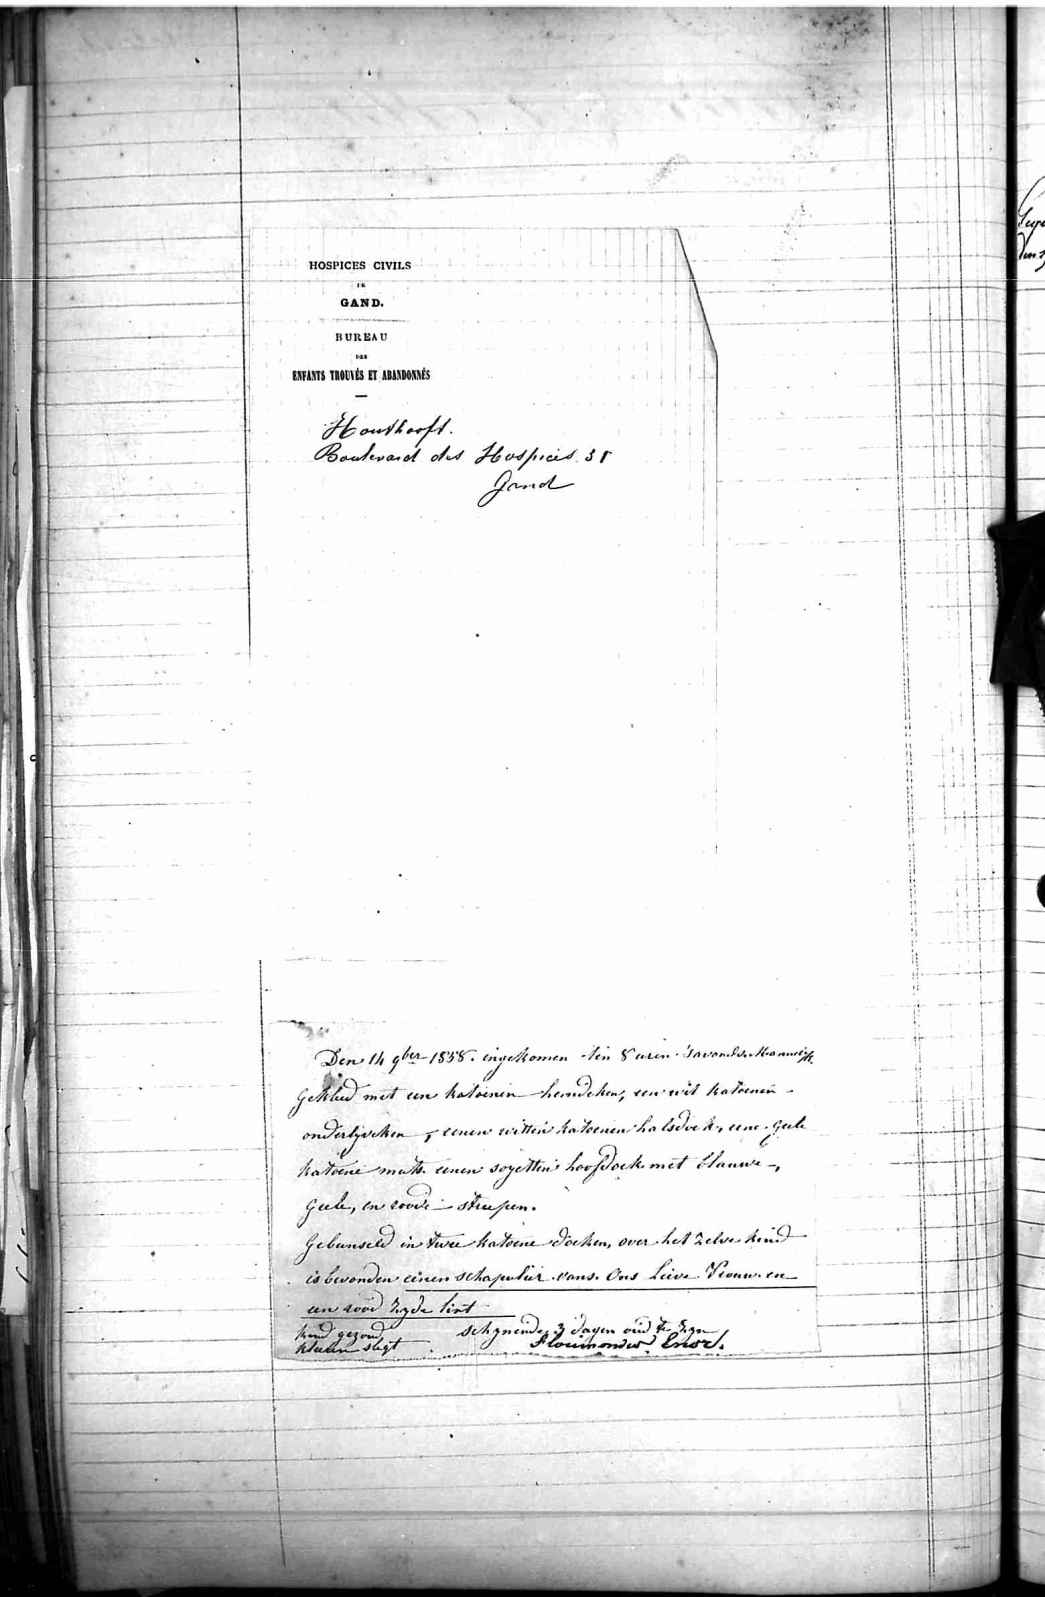 HOSPICES CIVILS
DE
GAND.
BUREAU
DES
ENFANTS TROUVÉS ET ABANDONNÉS
Houthooft.
Boulevard des Hospices 31
Gand
Den 14 9ber 1838. ingekomen ten 8 uren 's avonds
gekleed met een katoenen hemdeken, een wit katoenen
onderlyveken, eenen witten katoenen halsdoek, eene geele
katoene muts. eenen soyetten hoofdoek met blauwe,
geele, en roode streepen.
Gebunseld in twee katoene doeken, over het zelve kind
is bevonden eenen schapulier vans Ons Lieve Vrouw en
een rood zyde lint
kind gezond
kleeren slegt
schynende 3 dagen oud te zyn